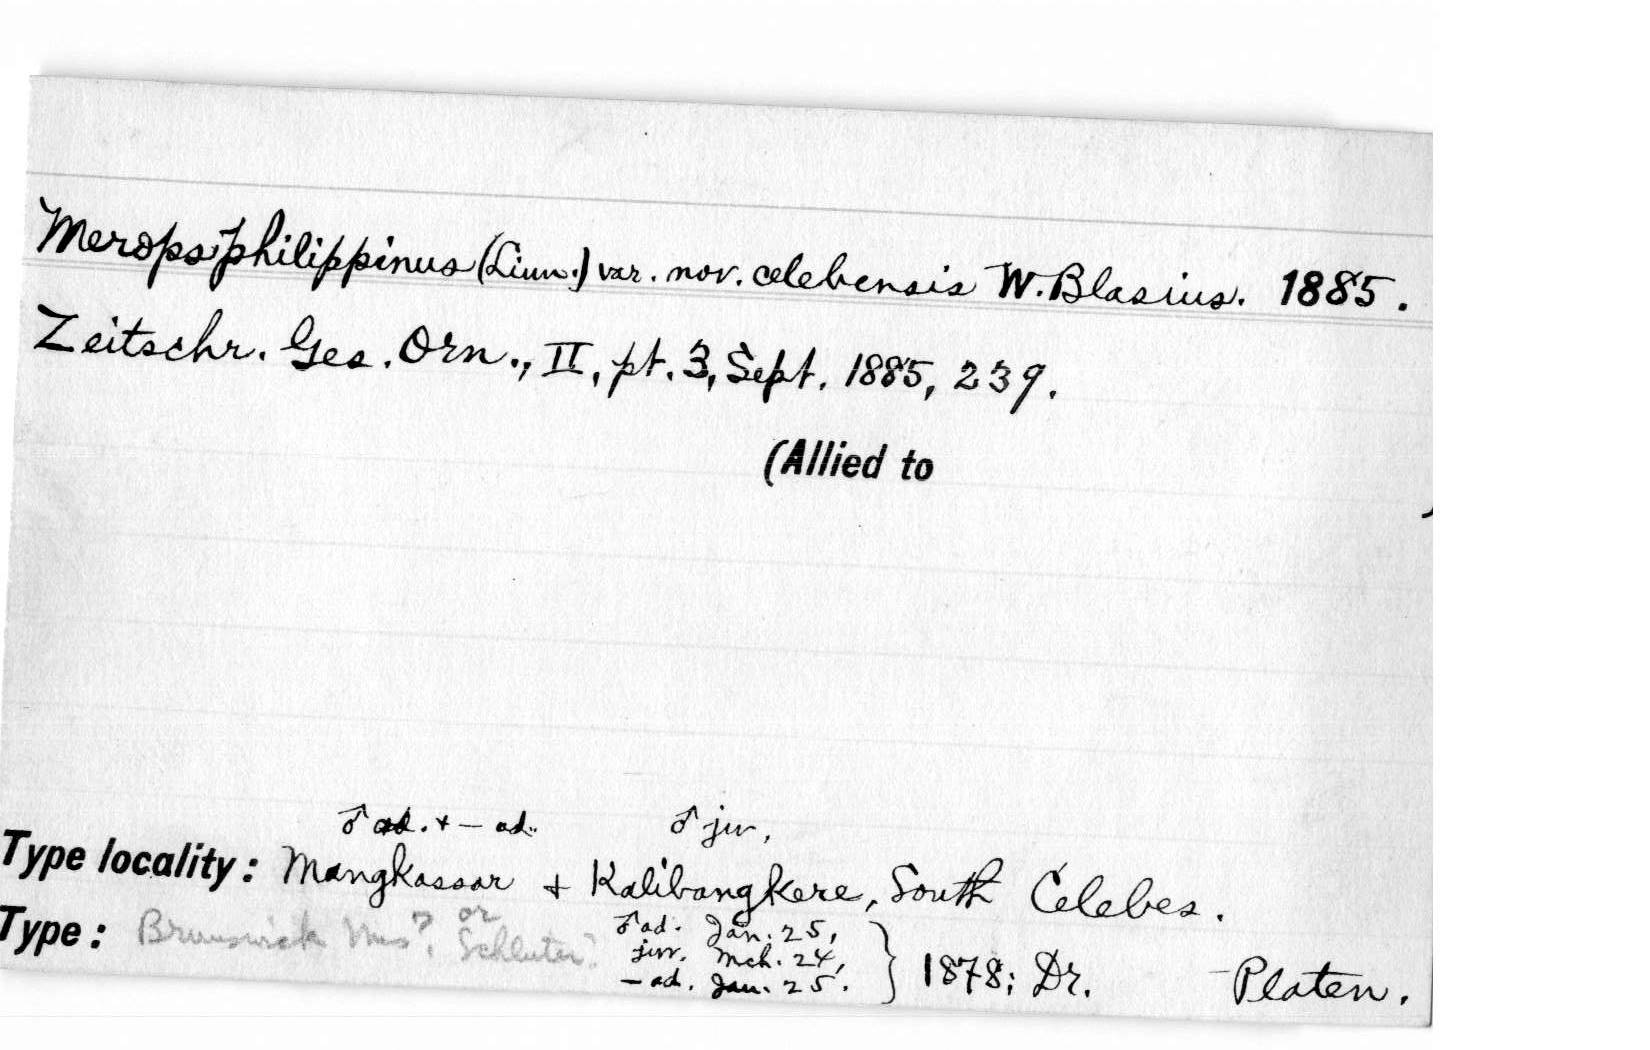 Merops philippinus (Linn.) var. nov. celebensis W. Blasius. 1885.
Zeitschr. Ges. Orn., II, pt. 3, Sept. 1885, 239.
(Allied to )
♂ ad. + — ad. ♂ juv,
Type locality: Mangkassar + Kalibangkere, South Celebes.
Type: Brunswick Mus?. or Schluter?
♂ ad. Jan. 25,
juv. Mch. 24,
— ad. Jan. 25.
} 1878; Dr. Platen.